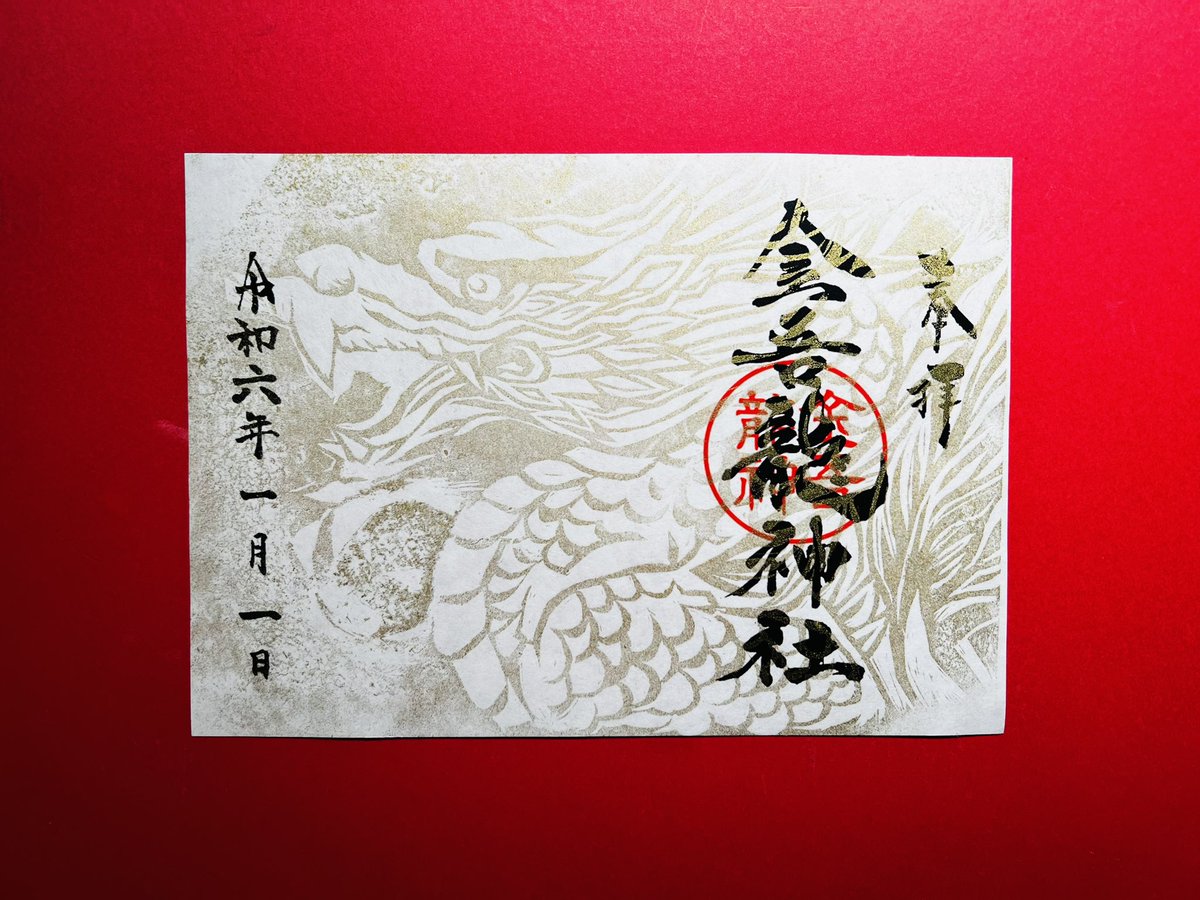 奉拝
金吾龍神社
令和六年一月一日